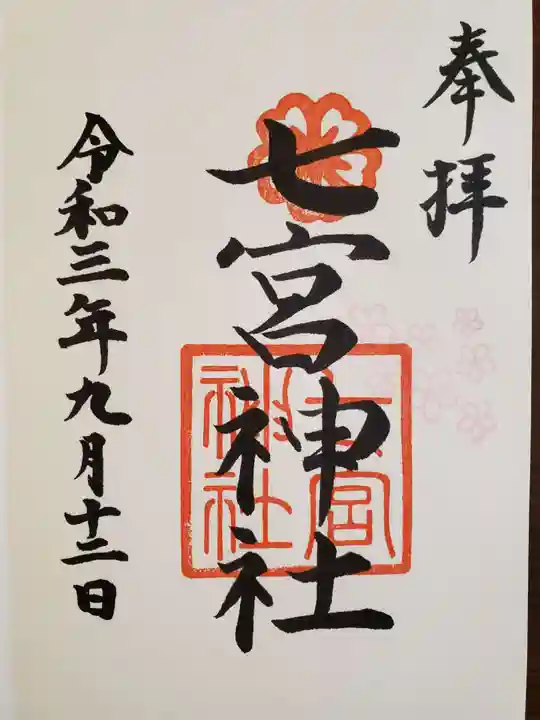 奉拝
七宮神社
七宮
神社
令和三年九月十二日